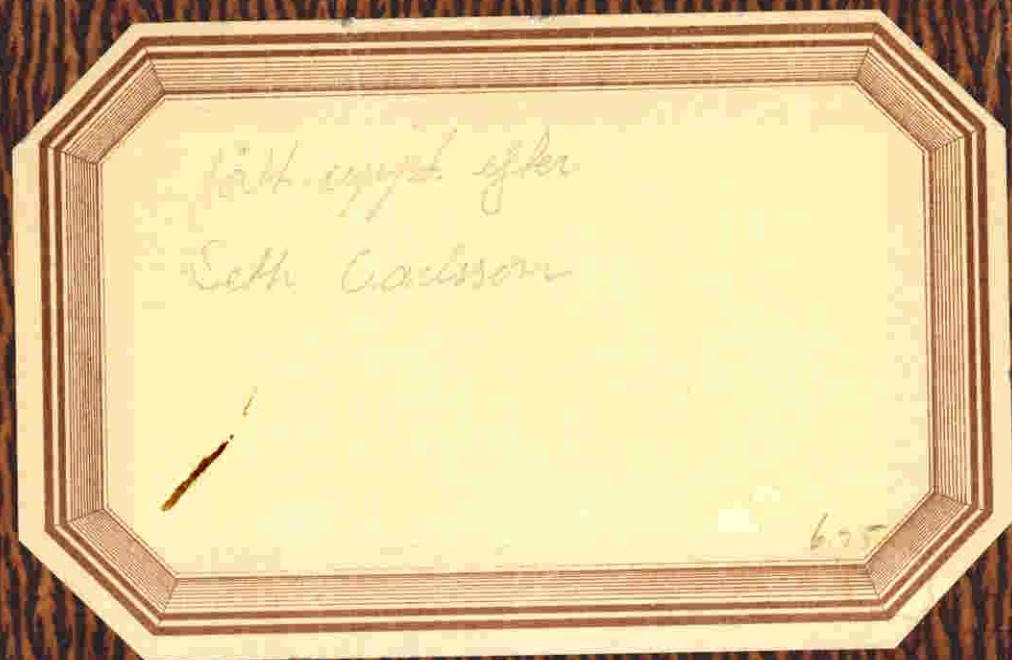 fått uppt efter
Seth Carlsson
6.75